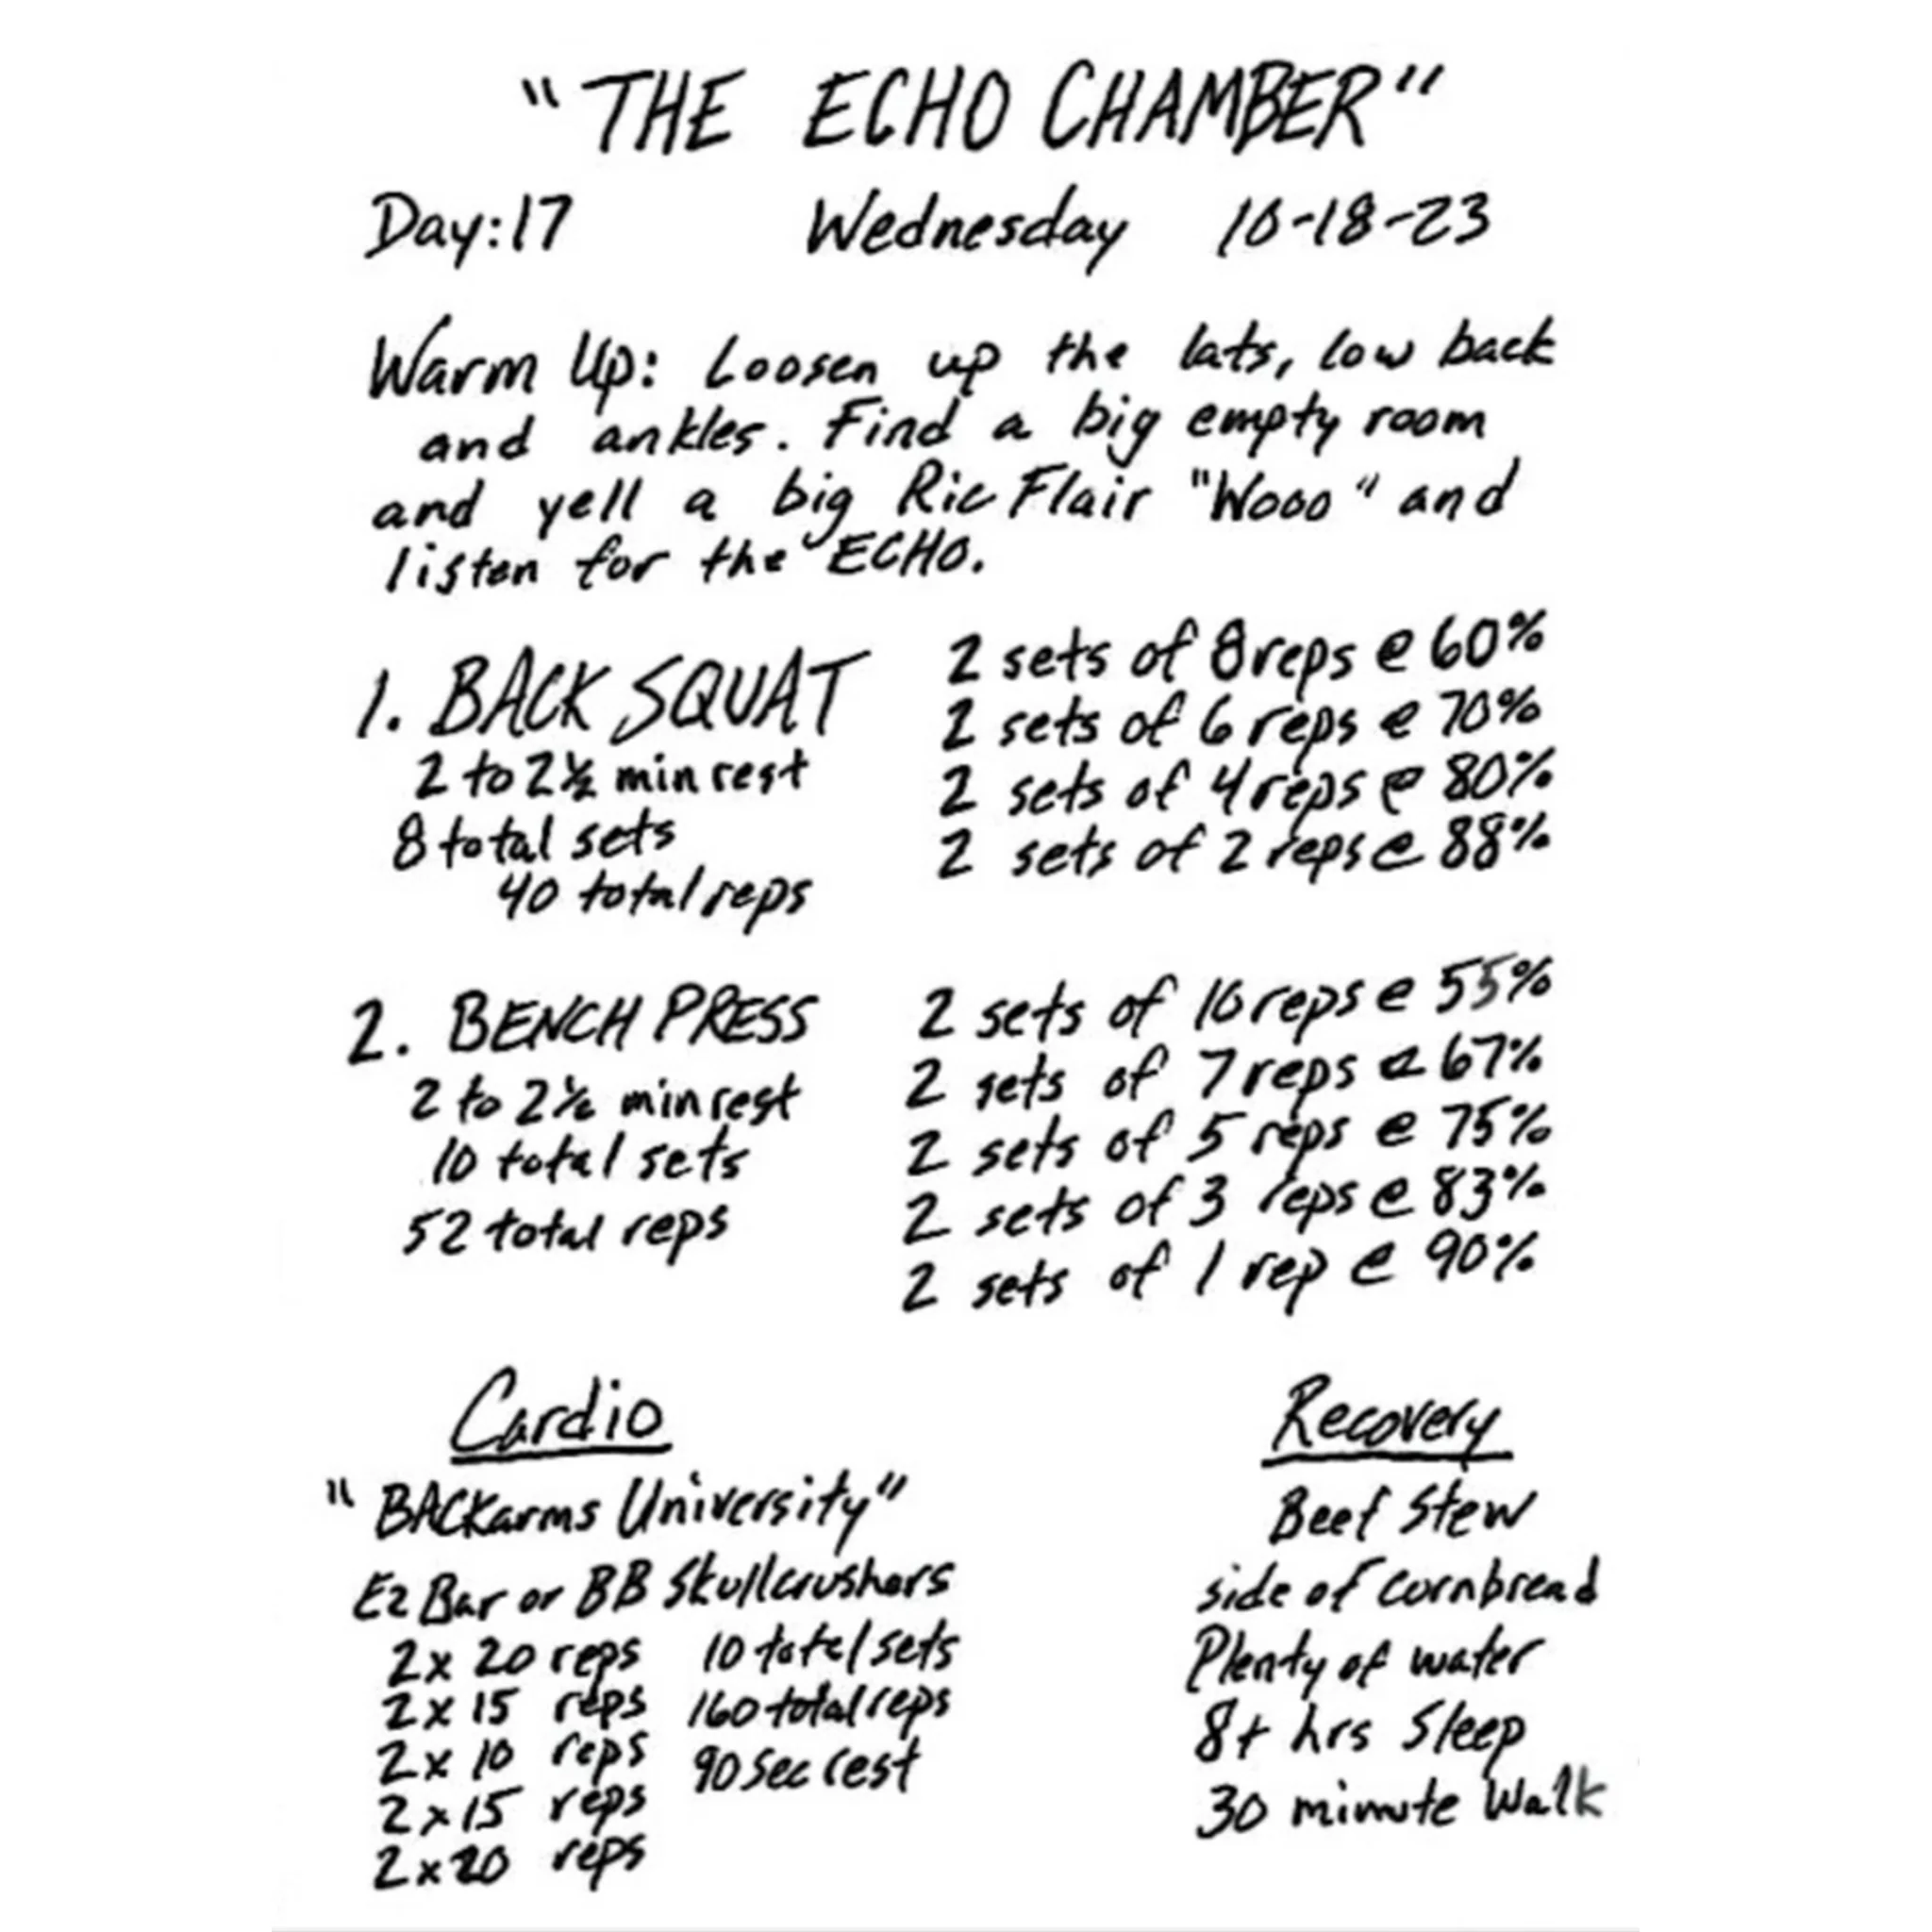 "THE ECHO CHAMBER"
Day:17 Wednesday 10-18-23
Warm Up: Loosen up the lats, low back
and ankles. Find a big empty room
and yell a big Ric Flair "Wooo" and
listen for the ECHO.
1. BACK SQUAT
2 to 2½ min rest
8 total sets
40 total reps
2 sets of 8 reps @ 60%
2 sets of 6 reps @ 70%
2 sets of 4 reps @ 80%
2 sets of 2 reps @ 88%
2. BENCH PRESS
2 to 2½ min rest
10 total sets
52 total reps
2 sets of 10 reps @ 55%
2 sets of 7 reps @ 67%
2 sets of 5 reps @ 75%
2 sets of 3 reps @ 83%
2 sets of 1 rep @ 90%
Cardio
"BACKarms University"
EZ Bar or BB Skullcrushers
2x 20 reps
2x 15 reps
2x 10 reps
2x15 reps
2x20 reps
10 total sets
160 total reps
90 sec rest
Recovery
Beef Stew
side of cornbread
Plenty of water
8+ hrs Sleep
30 minute Walk